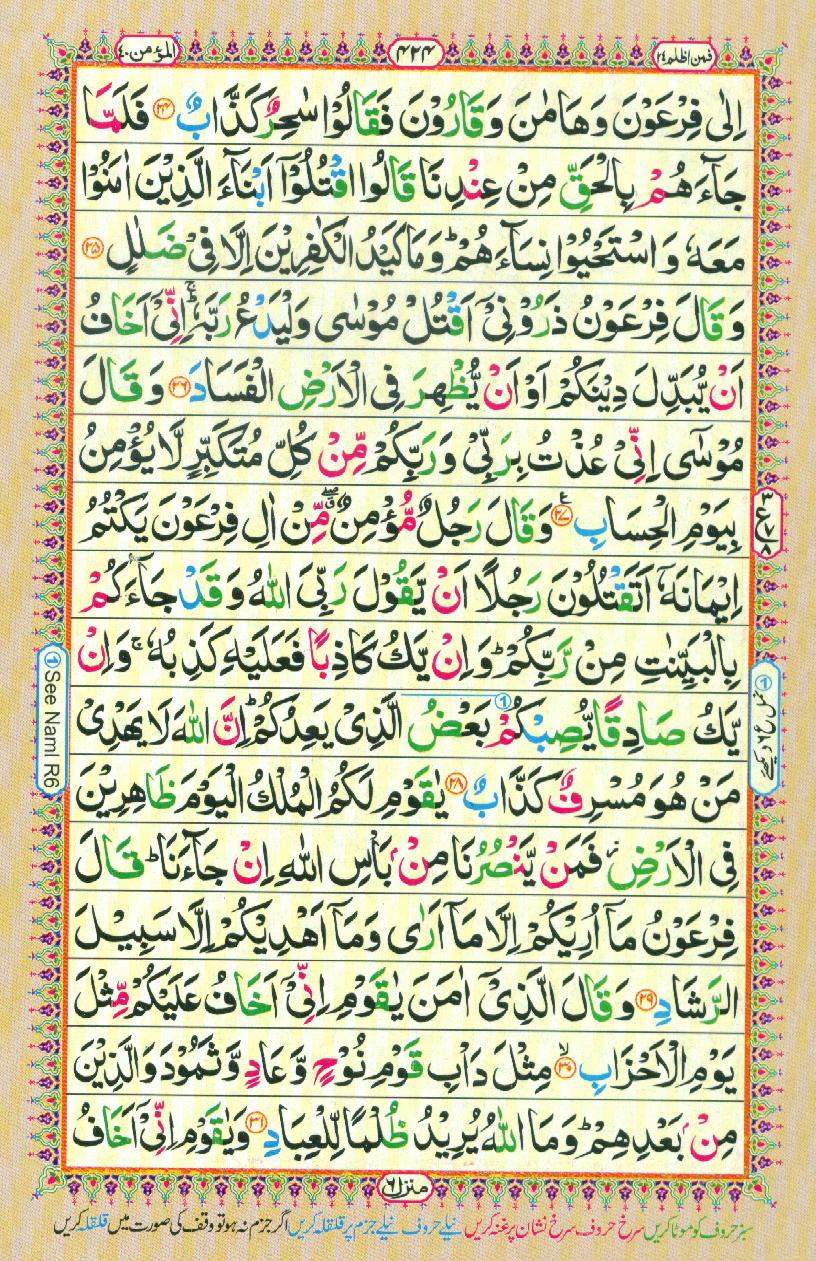 فمن اظلم ٢٤
٤٢٤
المؤمن ٤٠
اِلٰى فِرْعَوْنَ وَهَامٰنَ وَقَارُوْنَ فَقَالُوْا سٰحِرٌ كَذَّابٌ ﴿۲۴﴾ فَلَمَّا
جَآءَهُمْ بِالْحَقِّ مِنْ عِنْدِنَا قَالُوا اقْتُلُوْٓا اَبْنَآءَ الَّذِيْنَ اٰمَنُوْا
مَعَهٗ وَاسْتَحْيُوْا نِسَآءَهُمْ ؕ وَمَا كَيْدُ الْكٰفِرِيْنَ اِلَّا فِيْ ضَلٰلٍ ﴿۲۵﴾
وَقَالَ فِرْعَوْنُ ذَرُوْنِيْٓ اَقْتُلْ مُوْسٰى وَلْيَدْعُ رَبَّهٗ ۚ اِنِّيْٓ اَخَافُ
اَنْ يُّبَدِّلَ دِيْنَكُمْ اَوْ اَنْ يُّظْهِرَ فِي الْاَرْضِ الْفَسَادَ ﴿۲۶﴾ وَقَالَ
مُوْسٰٓى اِنِّيْ عُذْتُ بِرَبِّيْ وَرَبِّكُمْ مِّنْ كُلِّ مُتَكَبِّرٍ لَّا يُؤْمِنُ
بِيَوْمِ الْحِسَابِ ﴿۲۷﴾ ع وَقَالَ رَجُلٌ مُّؤْمِنٌ ۖق مِّنْ اٰلِ فِرْعَوْنَ يَكْتُمُ
اِيْمَانَهٗٓ اَتَقْتُلُوْنَ رَجُلًا اَنْ يَّقُوْلَ رَبِّيَ اللّٰهُ وَقَدْ جَآءَكُمْ
بِالْبَيِّنٰتِ مِنْ رَّبِّكُمْ ؕ وَاِنْ يَّكُ كَاذِبًا فَعَلَيْهِ كَذِبُهٗ ۚ وَاِنْ
يَّكُ صَادِقًا يُّصِبْكُمْ ① بَعْضُ الَّذِيْ يَعِدُكُمْ ؕ اِنَّ اللّٰهَ لَا يَهْدِيْ
مَنْ هُوَ مُسْرِفٌ كَذَّابٌ ﴿۲۸﴾ يٰقَوْمِ لَكُمُ الْمُلْكُ الْيَوْمَ ظَاهِرِيْنَ
فِي الْاَرْضِ ؗ فَمَنْ يَّنْصُرُنَا مِنْۢ بَاْسِ اللّٰهِ اِنْ جَآءَنَا ؕ قَالَ
فِرْعَوْنُ مَآ اُرِيْكُمْ اِلَّا مَآ اَرٰى وَمَآ اَهْدِيْكُمْ اِلَّا سَبِيْلَ
الرَّشَادِ ﴿۲۹﴾ وَقَالَ الَّذِيْٓ اٰمَنَ يٰقَوْمِ اِنِّيْٓ اَخَافُ عَلَيْكُمْ مِّثْلَ
يَوْمِ الْاَحْزَابِ ﴿۳۰﴾ۙ مِثْلَ دَاْبِ قَوْمِ نُوْحٍ وَّعَادٍ وَّثَمُوْدَ وَالَّذِيْنَ
مِنْۢ بَعْدِهِمْ ؕ وَمَا اللّٰهُ يُرِيْدُ ظُلْمًا لِّلْعِبَادِ ﴿۳۱﴾ وَيٰقَوْمِ اِنِّيْٓ اَخَافُ
① See Naml R6
منزل ٦
سبز حروف کو موٹا کریں سرخ حروف سرخ نشان پر غنہ کریں نیلے حروف نیلے جزم پر قلقلہ کریں اگر جزم نہ ہو تو وقف کی صورت میں قلقلہ کریں